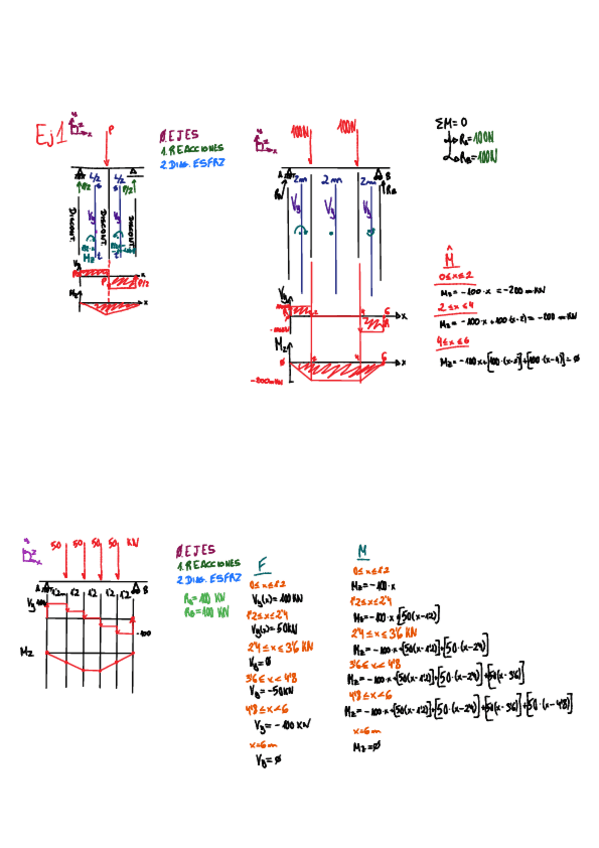 Ej1
P
Ø.EJES
1.REACCIONES
2.DIAG.ESFRZ
P/2
L/2
L/2
P/2
Vy
Mz
x
100N
100N
A
B
RA
RB
2m
2m
2m
Vy
Vy
Vy
x
Mz
Ø
2
4
6
x
ΣM=0
RA=100N
RB=100N
M
0≤x≤2
Mz=-100·x =-200
2≤x≤4
Mz=-100·x+100·(x-2)=-200
4≤x≤6
Mz=-100x+[100·(x-2)]+[100·(x-4)]=Ø
50 50 50 50 KN
A
B
1'2 1'2 1'2 1'2
Vy
-100
Mz
Ø.EJES
1.REACCIONES
2.DIAG.ESFRZ
RA=100 KN
RB=100 KN
F
0≤x≤1'2
Vy(x)=100KN
1'2≤x≤2'4
Vy(x)=50KN
2'4≤x≤3'6 KN
Vy=Ø
3'6≤x<4'8
Vy=-50KN
4'8≤x<6
Vy=-100KN
x=6m
Vy=Ø
M
0≤x≤1'2
Mz=-100·x
1'2≤x≤2'4
Mz=-100·x+[50(x-1'2)]
2'4≤x≤3'6 KN
Mz=-100·x+[50(x-1'2)]+[50·(x-2'4)]
3'6≤x<4'8
Mz=-100·x+[50(x-1'2)]+[50·(x-2'4)]+[50(x-3'6)]
4'8≤x<6
Mz=-100·x+[50(x-1'2)]+[50·(x-2'4)]+[50(x-3'6)]+[50·(x-4'8)]
x=6m
Mz=Ø